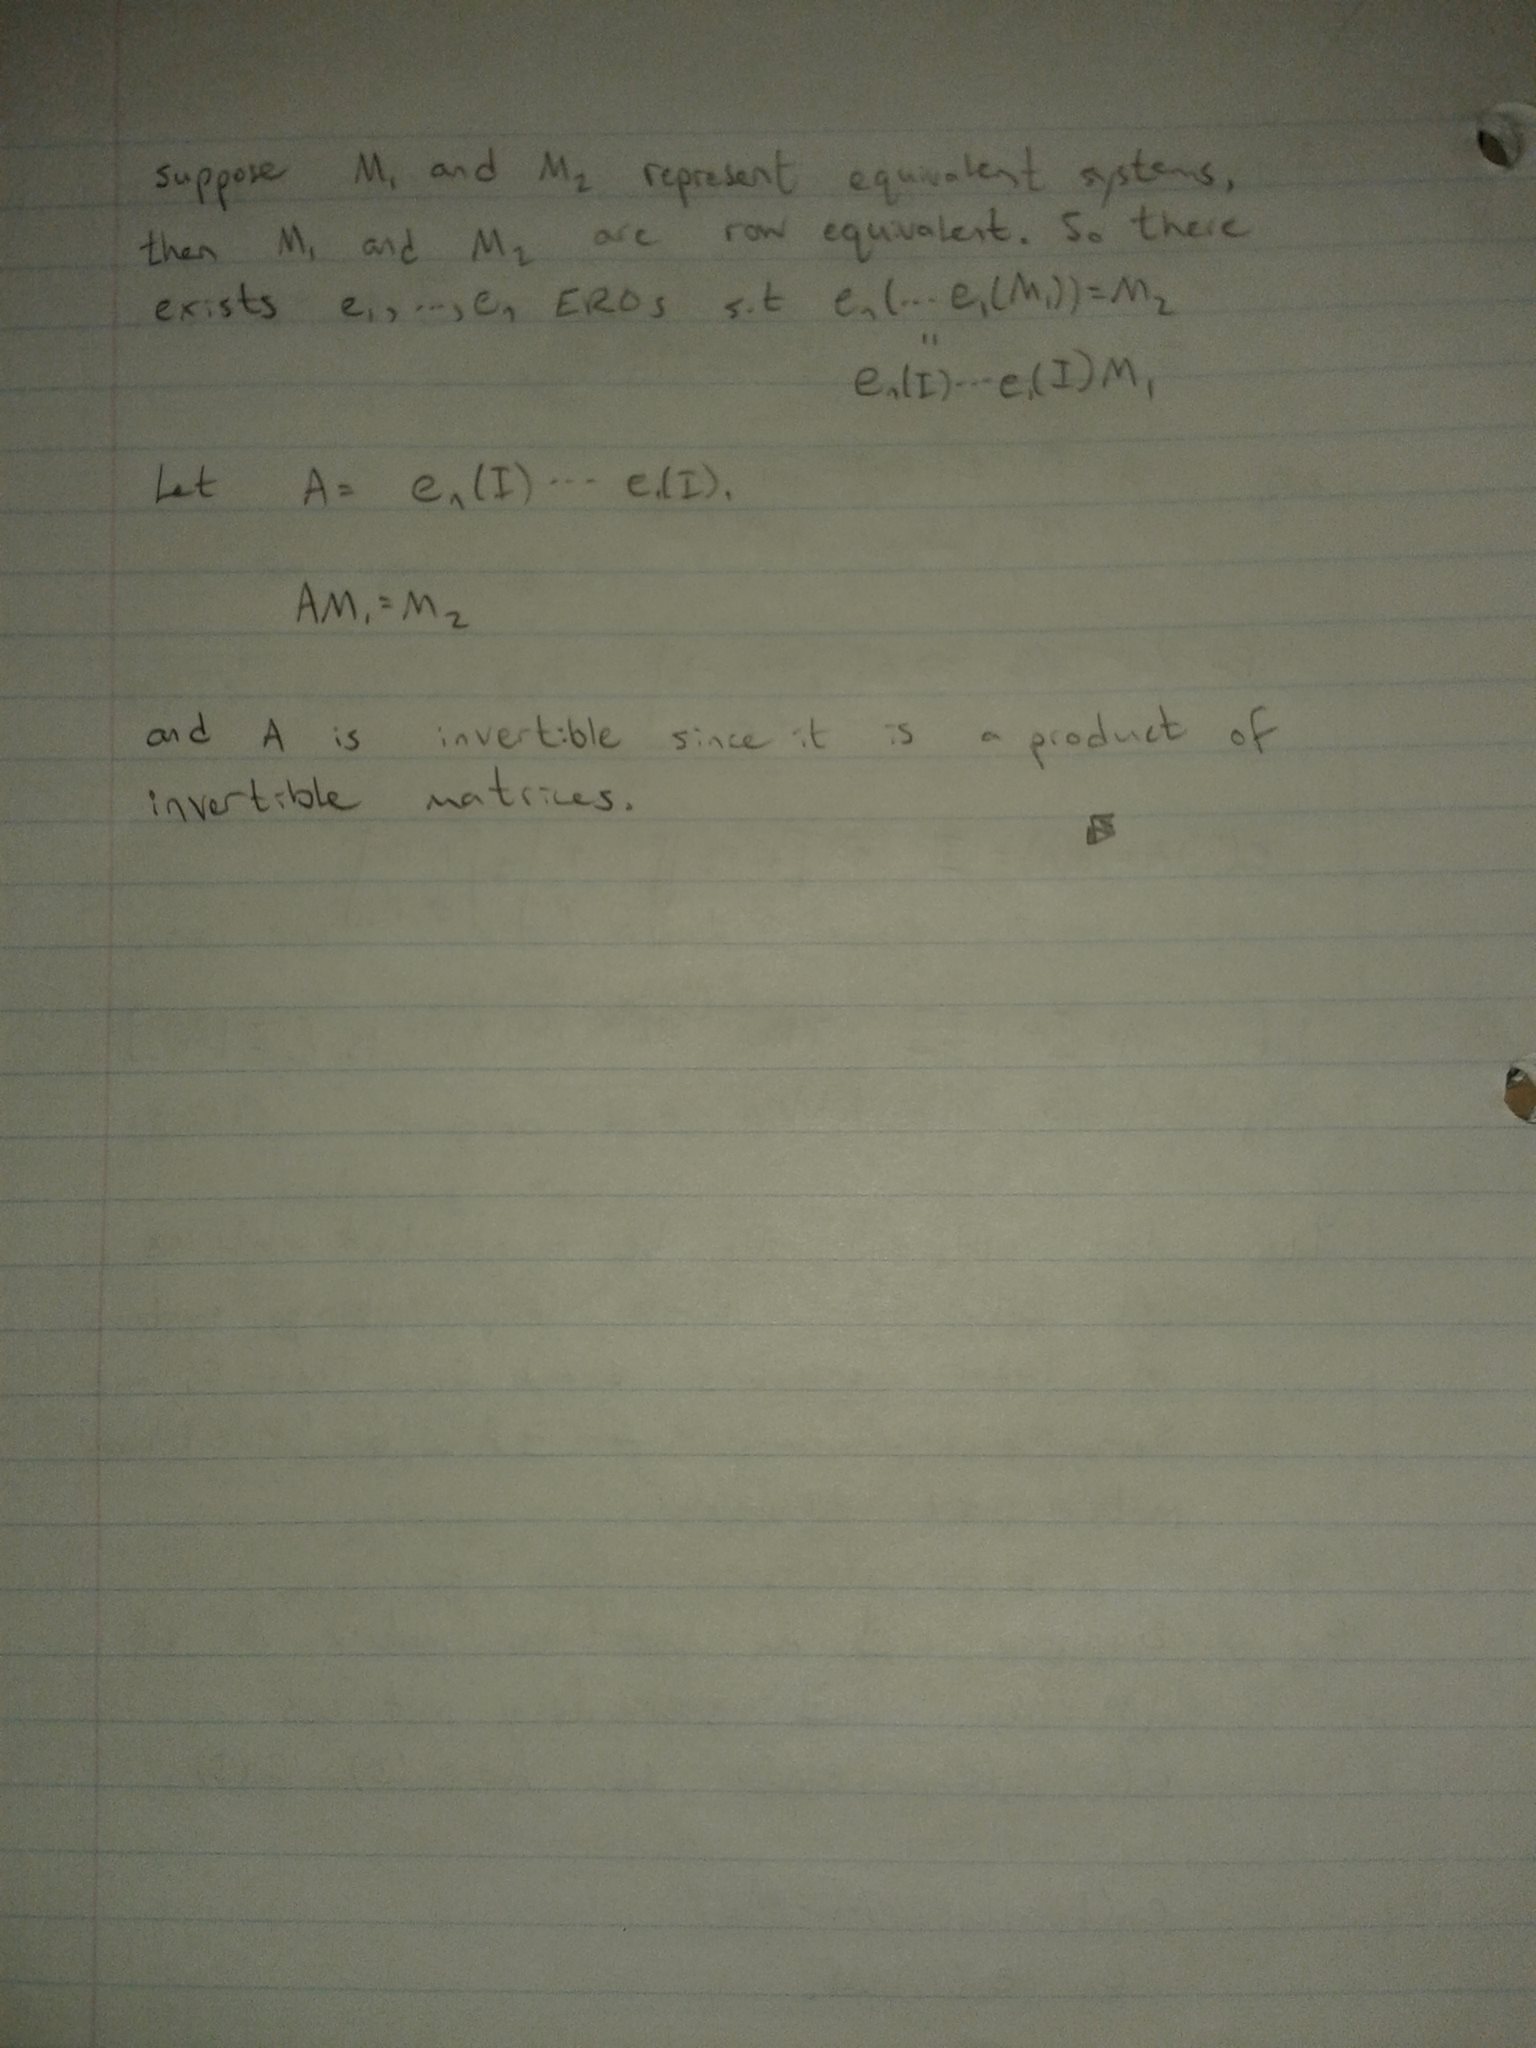 suppose M₁ and M₂ represent equivalent systems,
then M₁ and M₂ are row equivalent. So there
exists e₁, ..., eₙ EROs s.t eₙ(... e₁(M₁))=M₂
"
eₙ(I)...e₁(I)M₁
Let A= eₙ(I) ... e₁(I).
AM₁=M₂
and A is invertible since it is a product of
invertible matrices.